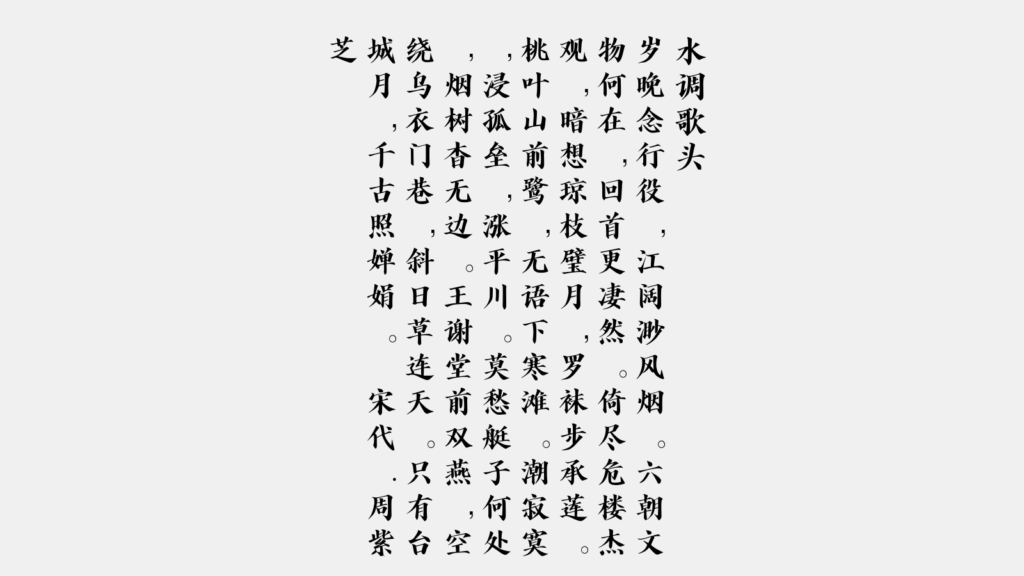 水调歌头
岁晚念行役，江阔渺风烟。六朝文
物何在，回首更凄然。倚尽危楼杰
观，暗想琼枝璧月，罗袜步承莲。
桃叶山前鹭，无语下寒滩。潮寂寞
，浸孤垒，涨平川。莫愁艇子何处
，烟树杳无边。王谢堂前双燕，空
绕乌衣门巷，斜日草连天。只有台
城月，千古照婵娟。 宋代.周紫
芝